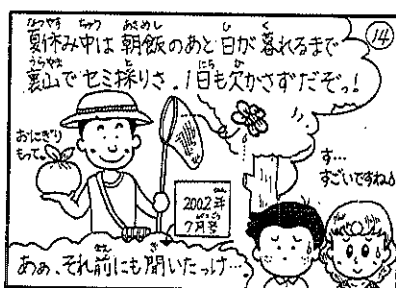 夏休み中は朝飯のあと日が暮れるまで
裏山でセミ採りさ。1日も欠かさずだぞっ!
14
おにぎり
もって。
2002年
7月号
す…
すごいですねぇ
あぁ、それ前にも聞いたっけ…